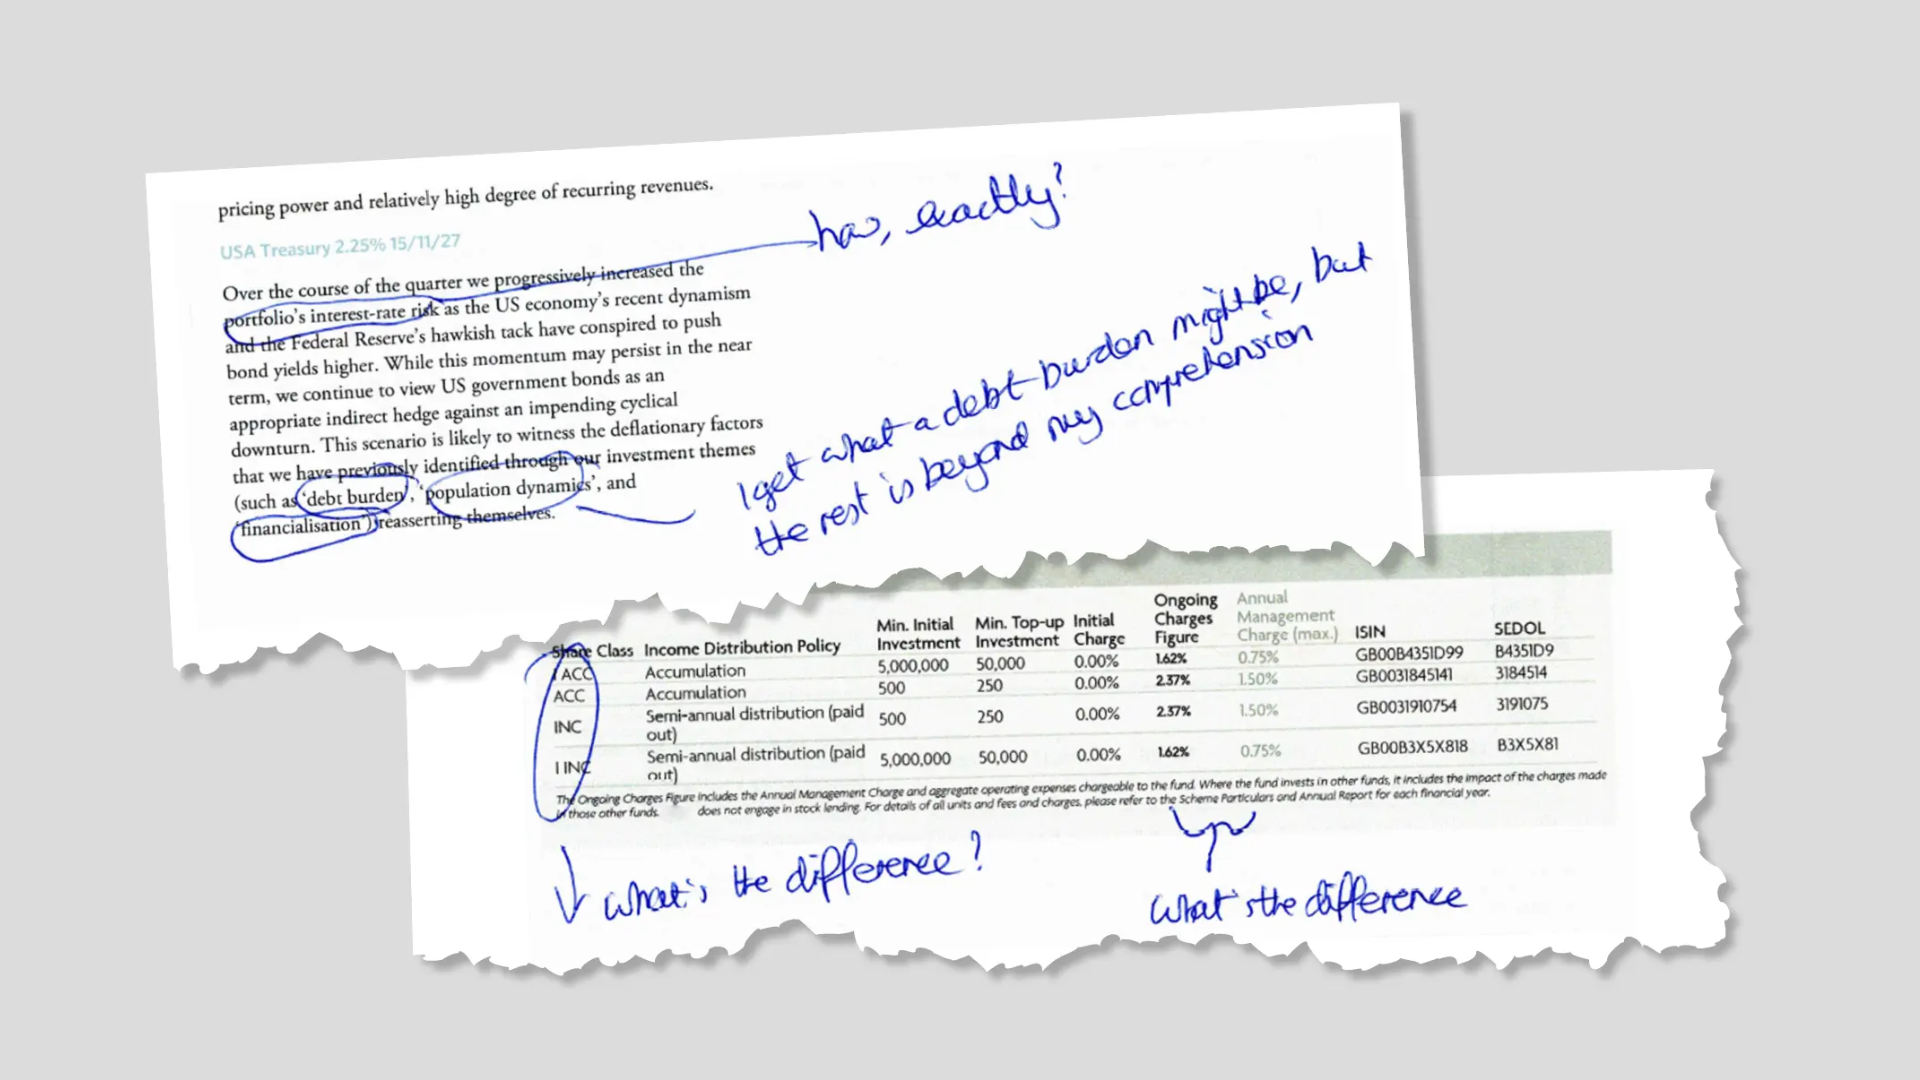 pricing power and relatively high degree of recurring revenues.
USA Treasury 2.25% 15/11/27
Over the course of the quarter we progressively increased the
portfolio's interest-rate risk as the US economy's recent dynamism
and the Federal Reserve's hawkish tack have conspired to push
bond yields higher. While this momentum may persist in the near
term, we continue to view US government bonds as an
appropriate indirect hedge against an impending cyclical
downturn. This scenario is likely to witness the deflationary factors
that we have previously identified through our investment themes
(such as 'debt burden', 'population dynamics', and
'financialisation') reasserting themselves.
how, exactly?
I get what a debt burden might be, but
the rest is beyond my comprehension
Share Class Income Distribution Policy Min. Initial Investment Min. Top-up Investment Initial Charge Ongoing Charges Figure Annual Management Charge (max.) ISIN SEDOL
I ACC Accumulation 5,000,000 50,000 0.00% 1.62% 0.75% GB00B4351D99 B4351D9
ACC Accumulation 500 250 0.00% 2.37% 1.50% GB0031845141 3184514
INC Semi-annual distribution (paid out) 500 250 0.00% 2.37% 1.50% GB0031910754 3191075
I INC Semi-annual distribution (paid out) 5,000,000 50,000 0.00% 1.62% 0.75% GB00B3X5X818 B3X5X81
The Ongoing Charges Figure includes the Annual Management Charge and aggregate operating expenses chargeable to the fund. Where the fund invests in other funds, it includes the impact of the charges made
in those other funds. does not engage in stock lending. For details of all units and fees and charges, please refer to the Scheme Particulars and Annual Report for each financial year.
what's the difference?
what's the difference